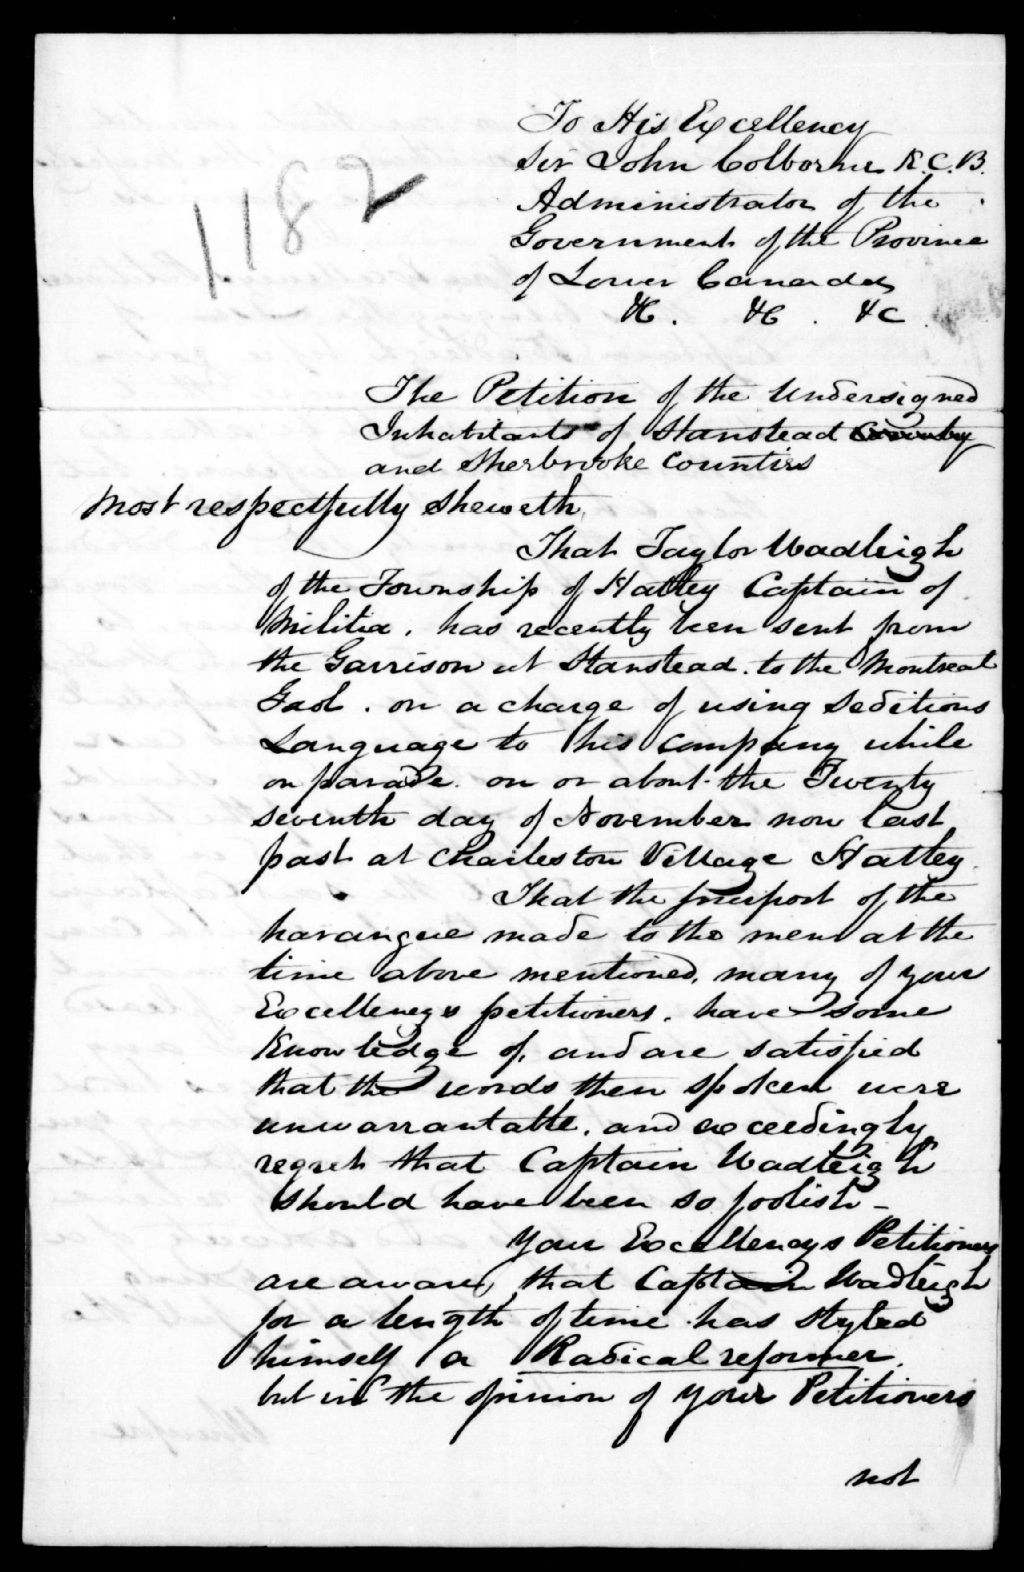 1182
To His Excellency
Sir John Colborne K.C.B.
Administrator of the
Government of the Province
of Lower Canada
&c. &c. &c.
The Petition of the Undersigned
Inhabitants of Stanstead County
and Sherbrooke Counties
Most respectfully Sheweth,
That Taylor Wadleigh
of the Township of Hatley Captain of
Militia, has recently been sent from
the Garrison at Stanstead, to the Montreal
Gaol, on a charge of using Seditious
Language to his company while
on parade on or about the Twenty
seventh day of November now last
past at Charleston Village Hatley.
That the purport of the
harangue made to the men at the
time above mentioned, many of your
Excellencys petitioners, have some
Knowledge of, and are satisfied
that the words then spoken were
unwarrantable, and exceedingly
regret that Captain Wadleigh
should have been so foolish -
Your Excellencys Petitioners
are aware, that Captain Wadleigh
for a length of time has styled
himself a Radical reformer,
but in the opinion of your Petitioners
not